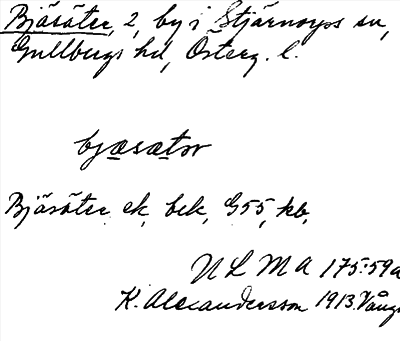 Bjäsäter, 2, by i Stjärnorps sn,
Gullbergs hd, Österg. l.
bjæsætər
Bjäsäter ek, bek, G55, kb,
ULMA 175:59a
K. Alexandersson 1913. Vångs